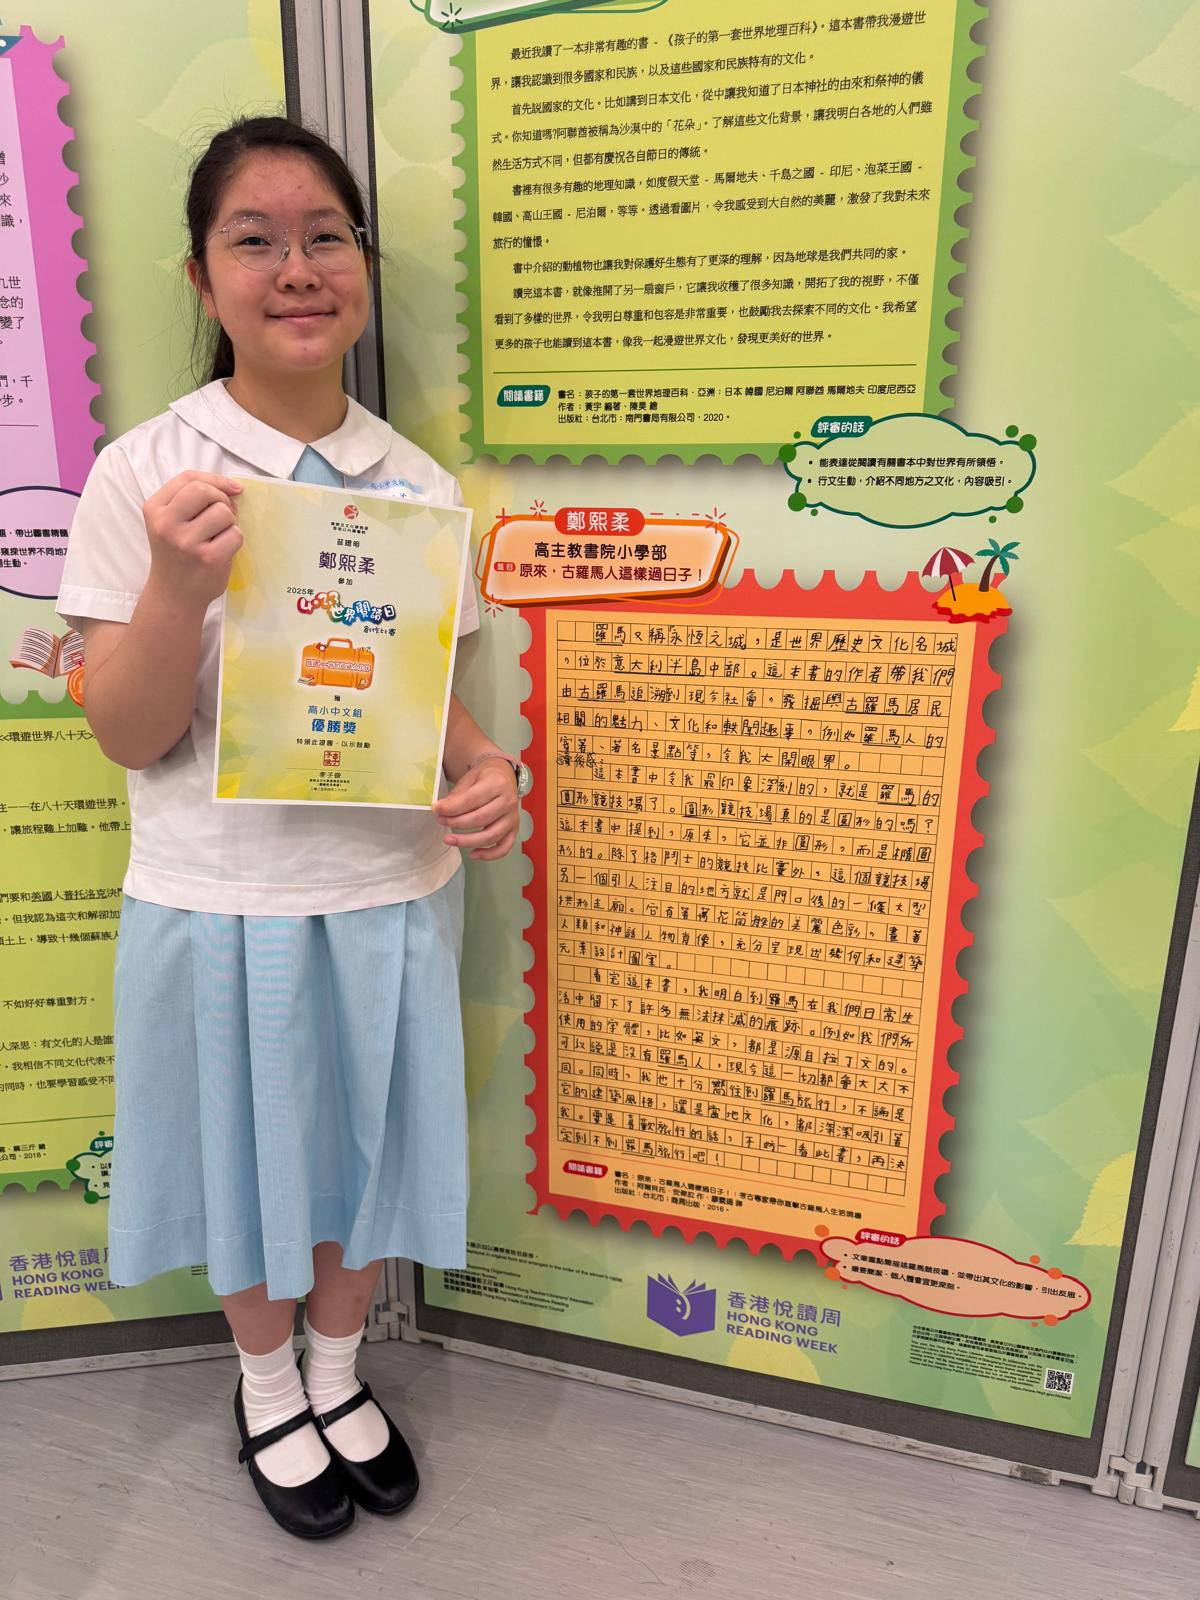 最近我讀了一本非常有趣的書 - 《孩子的第一套世界地理百科》。這本書帶我漫遊世
界，讓我認識到很多國家和民族，以及這些國家和民族特有的文化。
首先説國家的文化。比如講到日本文化，從中讓我知道了日本神社的由來和祭神的儀
式。你知道嗎?阿聯酋被稱為沙漠中的「花朵」。了解這些文化背景，讓我明白各地的人們雖
然生活方式不同，但都有慶祝各自節日的傳統。
書裡有很多有趣的地理知識，如度假天堂 - 馬爾地夫、千島之國 - 印尼、泡菜王國 -
韓國、高山王國 - 尼泊爾，等等。透過看圖片，令我感受到大自然的美麗，激發了我對未來
旅行的憧憬。
書中介紹的動植物也讓我對保護好生態有了更深的理解，因為地球是我們共同的家。
讀完這本書，就像推開了另一扇窗戶，它讓我收穫了很多知識，開拓了我的視野，不僅
看到了多樣的世界，令我明白尊重和包容是非常重要，也鼓勵我去探索不同的文化。我希望
更多的孩子也能讀到這本書，像我一起漫遊世界文化，發現更美好的世界。
閱讀書籍
書名：孩子的第一套世界地理百科．亞洲：日本 韓國 尼泊爾 阿聯酋 馬爾地夫 印度尼西亞
作者：黃宇 編著、陳昊 繪
出版社：台北市：南門書局有限公司，2020。
評審的話
• 能表達從閱讀有關書本中對世界有所領悟。
• 行文生動，介紹不同地方之文化，內容吸引。
鄭熙柔
高主教書院小學部
題目 原來，古羅馬人這樣過日子！
羅馬又稱「永恆之城」，是世界歷史文化名城
，位於意大利半島中部。這本書的作者帶我們
由古羅馬追溯到現今社會，發掘與古羅馬居民
相關的魅力、文化和軼聞趣事，例如羅馬人的
穿著、著名景點等，令我大開眼界。
讀後感：
這本書中令我最印象深刻的，就是羅馬的
圓形競技場了。圓形競技場真的是圓形的嗎？
這本書中提到，原來，它並非圓形，而是橢圓
形的。除了格鬥士的競技比賽外，這個競技場
另一個引人注目的地方就是門口後的一條大型
拱形走廊。它有著萬花筒般的美麗色彩，畫著
人類和神話人物肖像，充分呈現出幾何和建築
元素設計圖案。
看完這本書，我明白到羅馬在我們日常生
活中留下了許多無法抹滅的痕跡。例如我們所
使用的字體，比如英文，都是源自拉丁文的。
可以說是沒有羅馬人，現今這一切都會大大不
同。同時，我也十分嚮往到羅馬旅行，不論是
它的建築風格，還是當地文化，都深深吸引著
我。要是喜歡旅行的話，不妨一看此書，再決
定到不到羅馬旅行吧！
閱讀書籍
書名：原來，古羅馬人這樣過日子！：考古專家帶你直擊古羅馬人生活現場
出版社：台北市：商周出版，2016。
評審的話
• 文章重點闡描述羅馬競技場，並帶出其文化的影響，引出反思。
香港悅讀周
HONG KONG
READING WEEK
茲證明
鄭熙柔
參加
2025年
4·23世界閱讀日
創作比賽
獲
高小中文組
優勝獎
特頒此證書，以示鼓勵
高小中文組
九世
念的
變了
們，千
步。
<<環遊世界八十天>
在一一在八十天環遊世界。
，讓旅程難上加難。他帶上
們要和美國人普托洛克決鬥
。但我認為這次和解卻加
領土上，導致十幾個蘇族人
不如好好尊重對方。
人深思：有文化的人是誰
。我相信不同文化代表不
的同時，也要學習感受不同
香港悅讀周
HONG KONG
READING WEEK